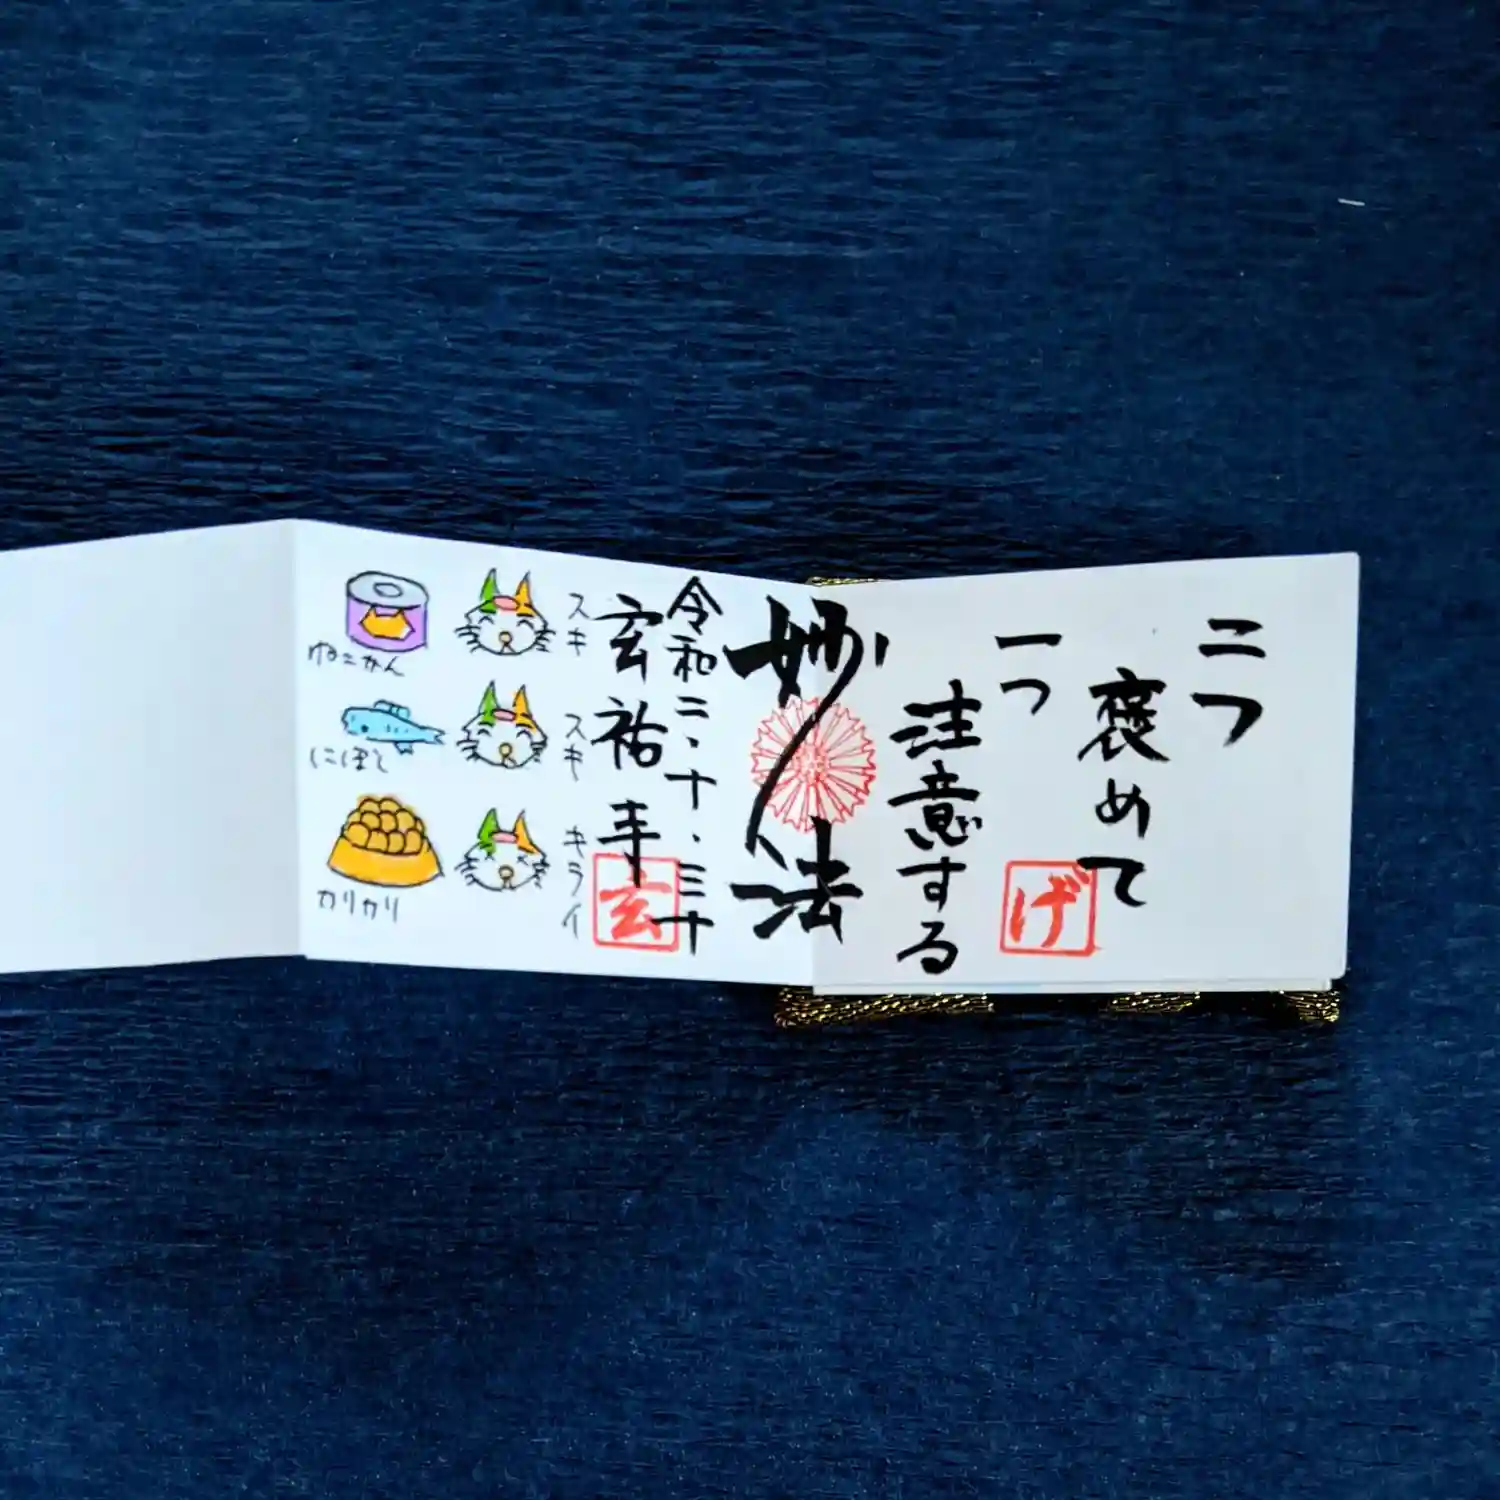 二つ
褒めて
げ
一つ
注意する
妙法
令和二、十・三十
玄祐
玄
スキ
スキ
キライ
ねこかん
にぼし
カリカリ